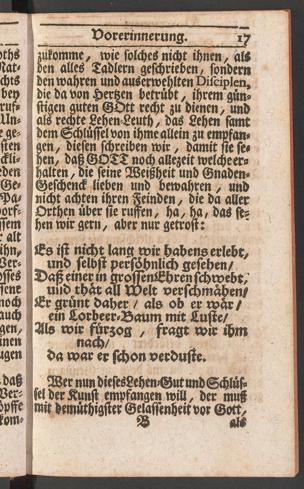 Vorerinnerung. 17
zukomme, wie solches nicht ihnen, als
den alles Tadlern geschrieben, sondern
den wahren und auserwehlten Disciplen,
die da von Hertzen betrübt, ihrem gün-
stigen guten GOtt recht zu dienen, und
als rechte Lehen-Leuth, das Lehen samt
dem Schlüssel von ihme allein zu empfan-
gen, diesen schreiben wir, damit sie se-
hen, daß GOTT noch allezeit welche er-
halten, die seine Weißheit und Gnaden-
Geschenck lieben und bewahren, und
nicht achten ihren Feinden, die da aller
Orthen über sie ruffen, ha, ha, das se-
hen wir gern, aber nur getrost:
Es ist nicht lang wir habens erlebt,
und selbst persöhnlich gesehen/
Daß einer in grossen Ehren schwebt,
und thät all Welt verschmähen/
Er grünt daher/ als ob er wär/
ein Lorbeer-Baum mit Luste/
Als wir fürzog, fragt wir ihm
nach/
da war er schon verduste.
Wer nun dieses Lehen-Gut und Schlüs-
sel der Kunst empfangen will, der muß
mit demüthigster Gelassenheit vor Gott,
B als